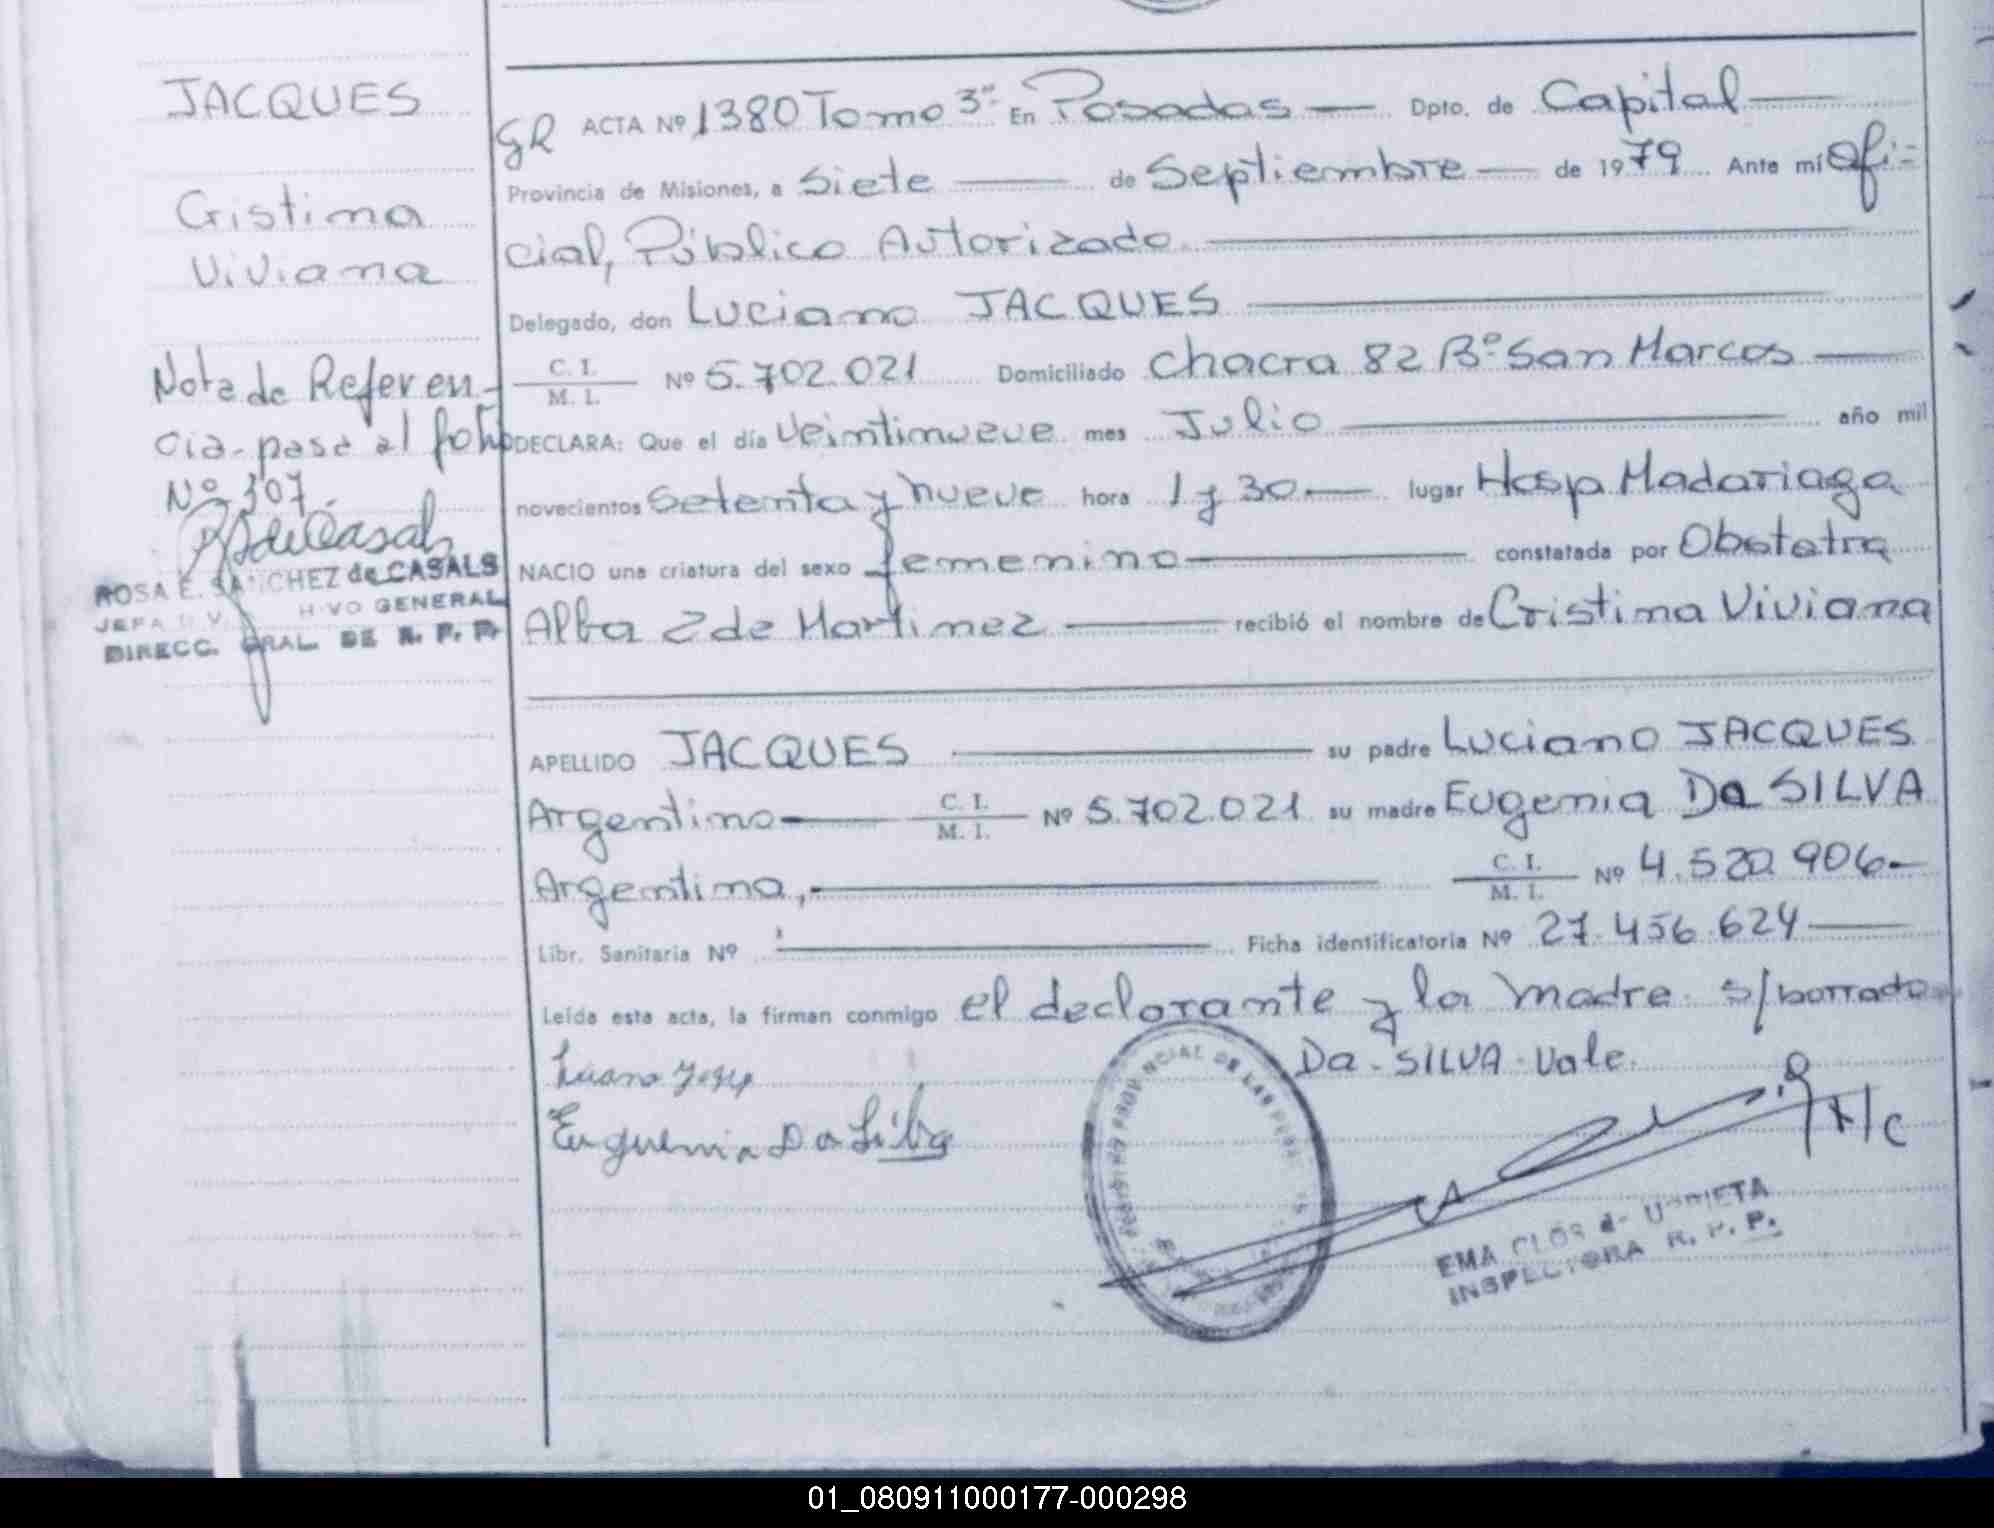 JACQUES
Cristina
Viviana
Nota de Referen-
cia- pasa al folio
Nº 307.
ROSA E. SANCHEZ de CASALS
JEFA HIVO GENERAL
DIRECC. GRAL. DE R. P. P.
GR ACTA Nº 1380 Tomo 3º En Posadas — Dpto. de Capital —
Provincia de Misiones, a Siete — de Septiembre — de 1979. Ante mí Ofi-
cial, Público Autorizado
Delegado, don Luciano JACQUES
C. I.
M. I. Nº 5.702.021 Domiciliado Chacra 82 Bº San Marcos —
DECLARA: Que el día Veintinueve mes Julio — año mil
novecientos Setenta y nueve hora 1 y 30 — lugar Hosp Madariaga
NACIO una criatura del sexo femenino — constatada por Obstetra
Alba Z de Martinez — recibió el nombre de Cristina Viviana
APELLIDO JACQUES — su padre Luciano JACQUES
Argentino — C. I.
M. I. Nº 5.702.021 su madre Eugenia Da SILVA
Argentina, — C. I.
M. I. Nº 4.520.906 —
Libr. Sanitaria Nº — Ficha identificatoria Nº 27.456.624 —
Leída esta acta, la firman conmigo el declarante y la madre. s/borrado
Da-SILVA-Vale.
Euguenia Da Silba
A/C
REGISTRO PROVINCIAL DE LAS PERS
EMA CLOS de URRIETA
INSPECTORA R. P. P.
01_080911000177-000298